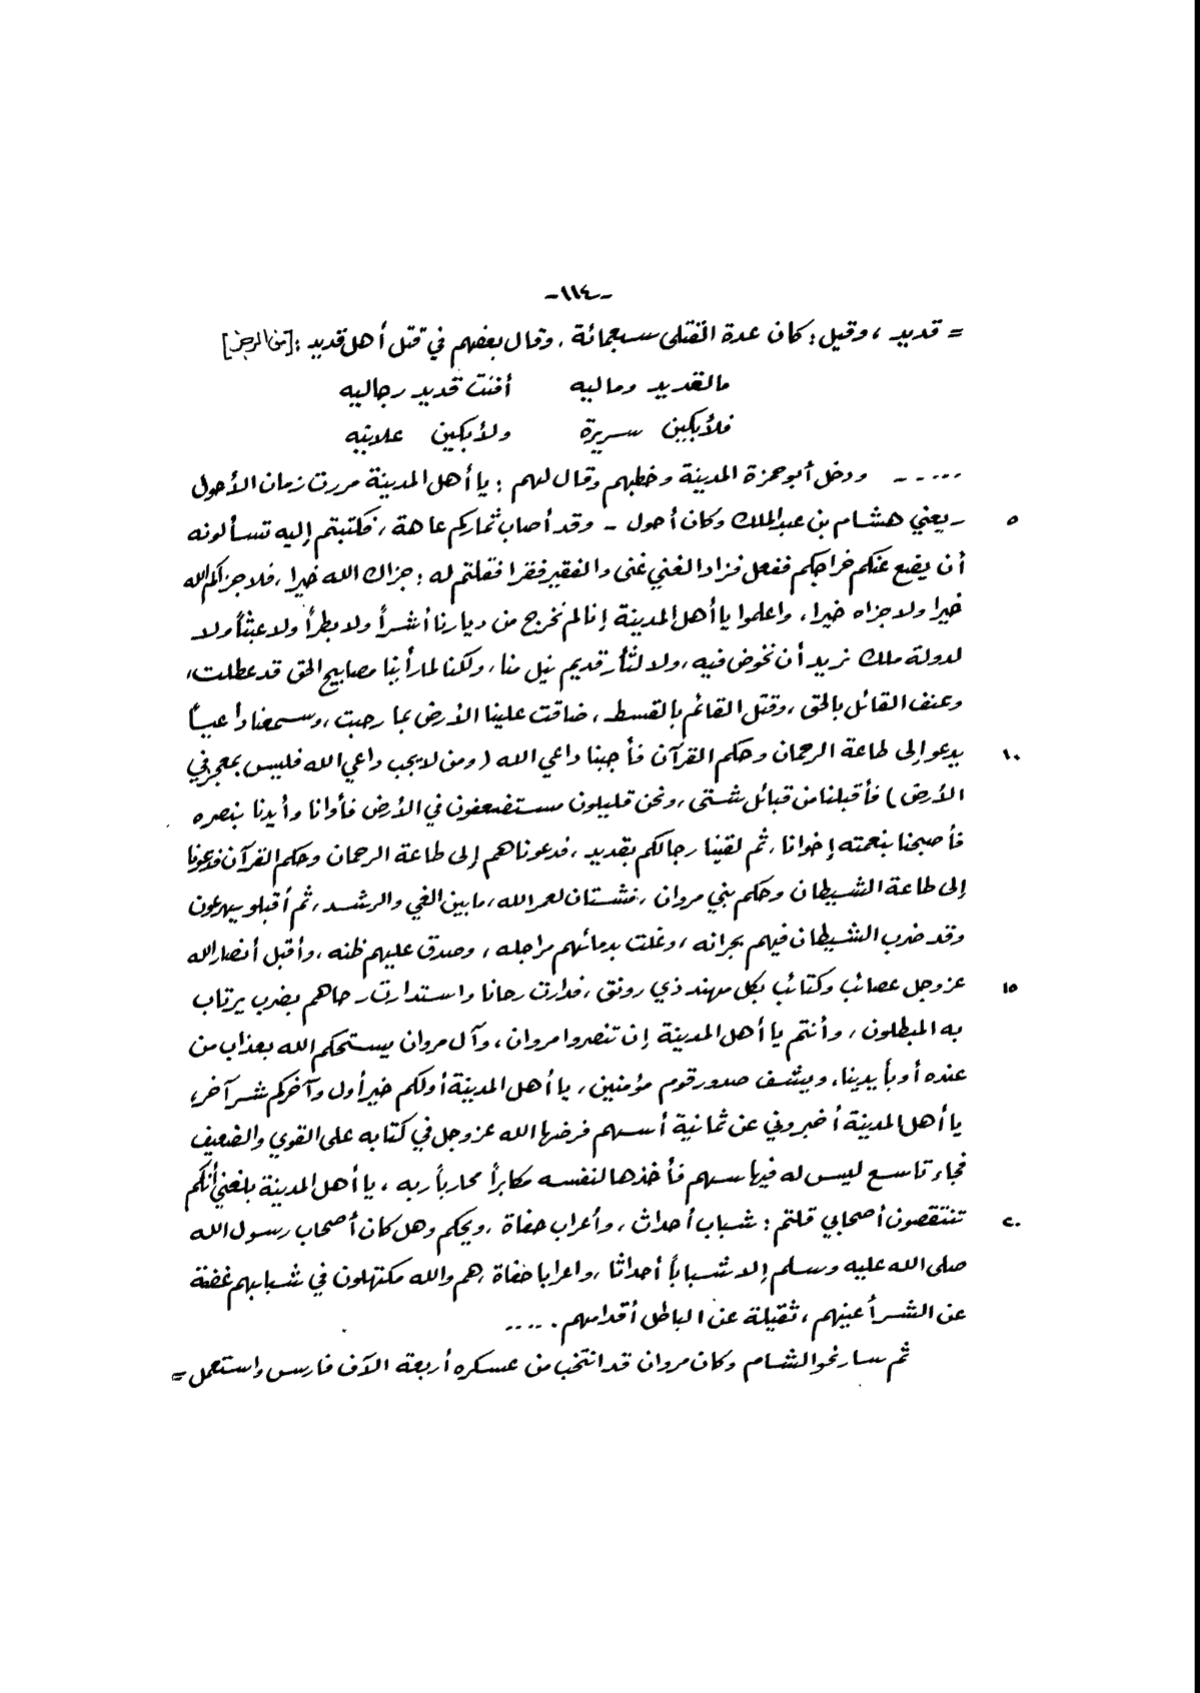 -١١٤-
= قديد ، وقيل : كان عدة القتلى سبعمائة . وقال بعضهم في قتل أهل قديد : [من الرجز]
مالقديد وماليه أفنت قديد رجاليه
فلأبكين سريرة ولأبكين علانيه
..... ودخل أبو حمزة المدينة وخطبهم وقال لهم : يا أهل المدينة مررت زمان الأحول
٥ - يعني هشام بن عبد الملك وكان أحول - وقد أصاب ثماركم عاهة ، فكتبتم إليه تسألونه
أن يضع عنكم خراجكم ففعل فزاد الغني غنى والفقير فقرا فقلتم له : جزاك الله خيرا ، فلا جزاكم الله
خيرا ولا جزاه خيرا . واعلموا يا أهل المدينة إنا لم نخرج من ديارنا أشراً ولا بطراً ولا عبثاً ولا
لدولة ملك نريد أن نخوض فيه ، ولا لثأر قديم نيل منا ، ولكنا لما رأينا مصابيح الحق قد عطلت ،
وعنف القائل بالحق ، وقتل القائم بالقسط ، ضاقت علينا الأرض بما رحبت ، وسمعنا داعياً
١٠ يدعو إلى طاعة الرحمان وحكم القرآن فأجبنا داعي الله ( ومن لا يجب داعي الله فليس بمعجز في
الأرض ) فأقبلنا من قبائل شتى ، ونحن قليلون مستضعفون في الأرض فأوانا وأيدنا بنصره
فأصبحنا بنعمته إخوانا ، ثم لقينا رجالكم بقديد ، فدعوناهم إلى طاعة الرحمان وحكم القرآن فدعونا
إلى طاعة الشيطان وحكم بني مروان ، فشتان لعمر الله ، ما بين الغي والرشد ، ثم أقبلو يهرعون
وقد ضرب الشيطان فيهم بجرانه ، وغلت بدمائهم مراجله ، وصدق عليهم ظنه ، وأقبل أنصار الله
١٥ عز وجل عصائب وكتائب بكل مهند ذي رونق ، فدارت رحانا واستدارت رحاهم بضرب يرتاب
به المبطلون ، وأنتم يا أهل المدينة إن تنصروا مروان ، وآل مروان يستحكم الله بعذاب من
عنده أو بأيدينا ، ويشف صدور قوم مؤمنين ، يا أهل المدينة أولكم خير أول وآخركم شر آخر ،
يا أهل المدينة أخبروني عن ثمانية أسهم فرضها الله عز وجل في كتابه على القوي والضعيف
فجاء تاسع ليس له فيها سهم فأخذها لنفسه مكابراً محارباً ربه ، يا أهل المدينة بلغني أنكم
٢٠ تنتقصون أصحابي قلتم : شباب أحداث ، وأعراب حفاة ، ويحكم وهل كان أصحاب رسول الله
صلى الله عليه وسلم إلا شباباً أحداثا ، واعرابا حفاة ، هم والله مكتهلون في شبابهم غضة
عن الشر أعينهم ، ثقيلة عن الباطل أقدامهم . ....
ثم سار نحو الشام وكان مروان قد انتخب من عسكره أربعة الآف فارس واستعمل =